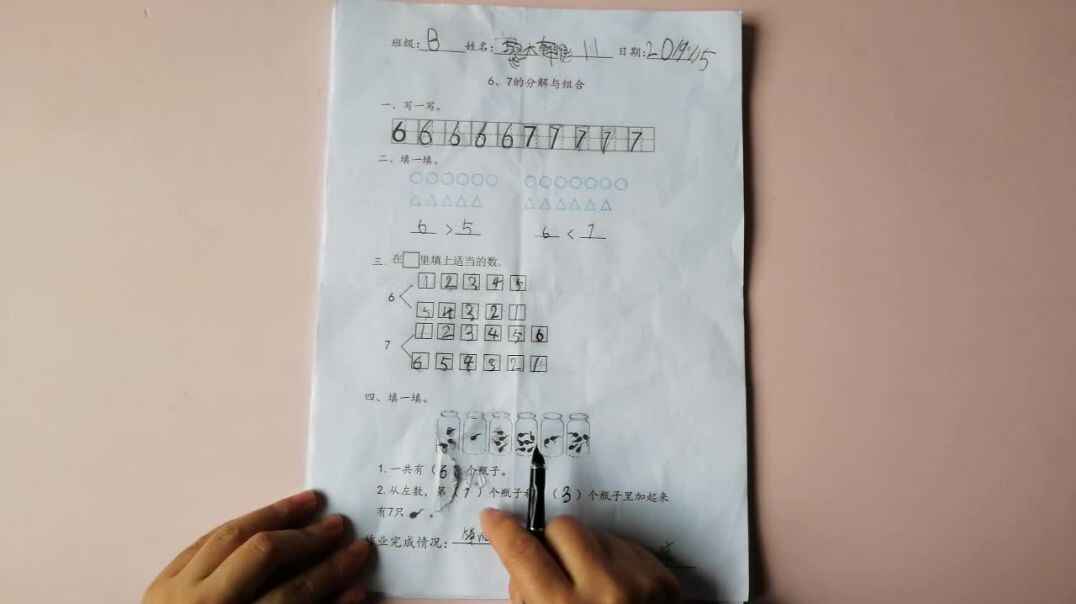 班级: B 姓名: 大 日期:
6、7的分解与组合
一、写一写。
6 6 6 6 6 7 7 7 7 7
二、填一填。
6 > 5 6 < 7
三、在里填上适当的数。
1 2 3 4 5
6
5 4 3 2 1
1 2 3 4 5 6
7
6 5 4 3 2 1
四、填一填。
1.一共有(6)个瓶子。
2.从左数,第(1)个瓶子 (3)个瓶子里加起来
有7只。
业完成情况: